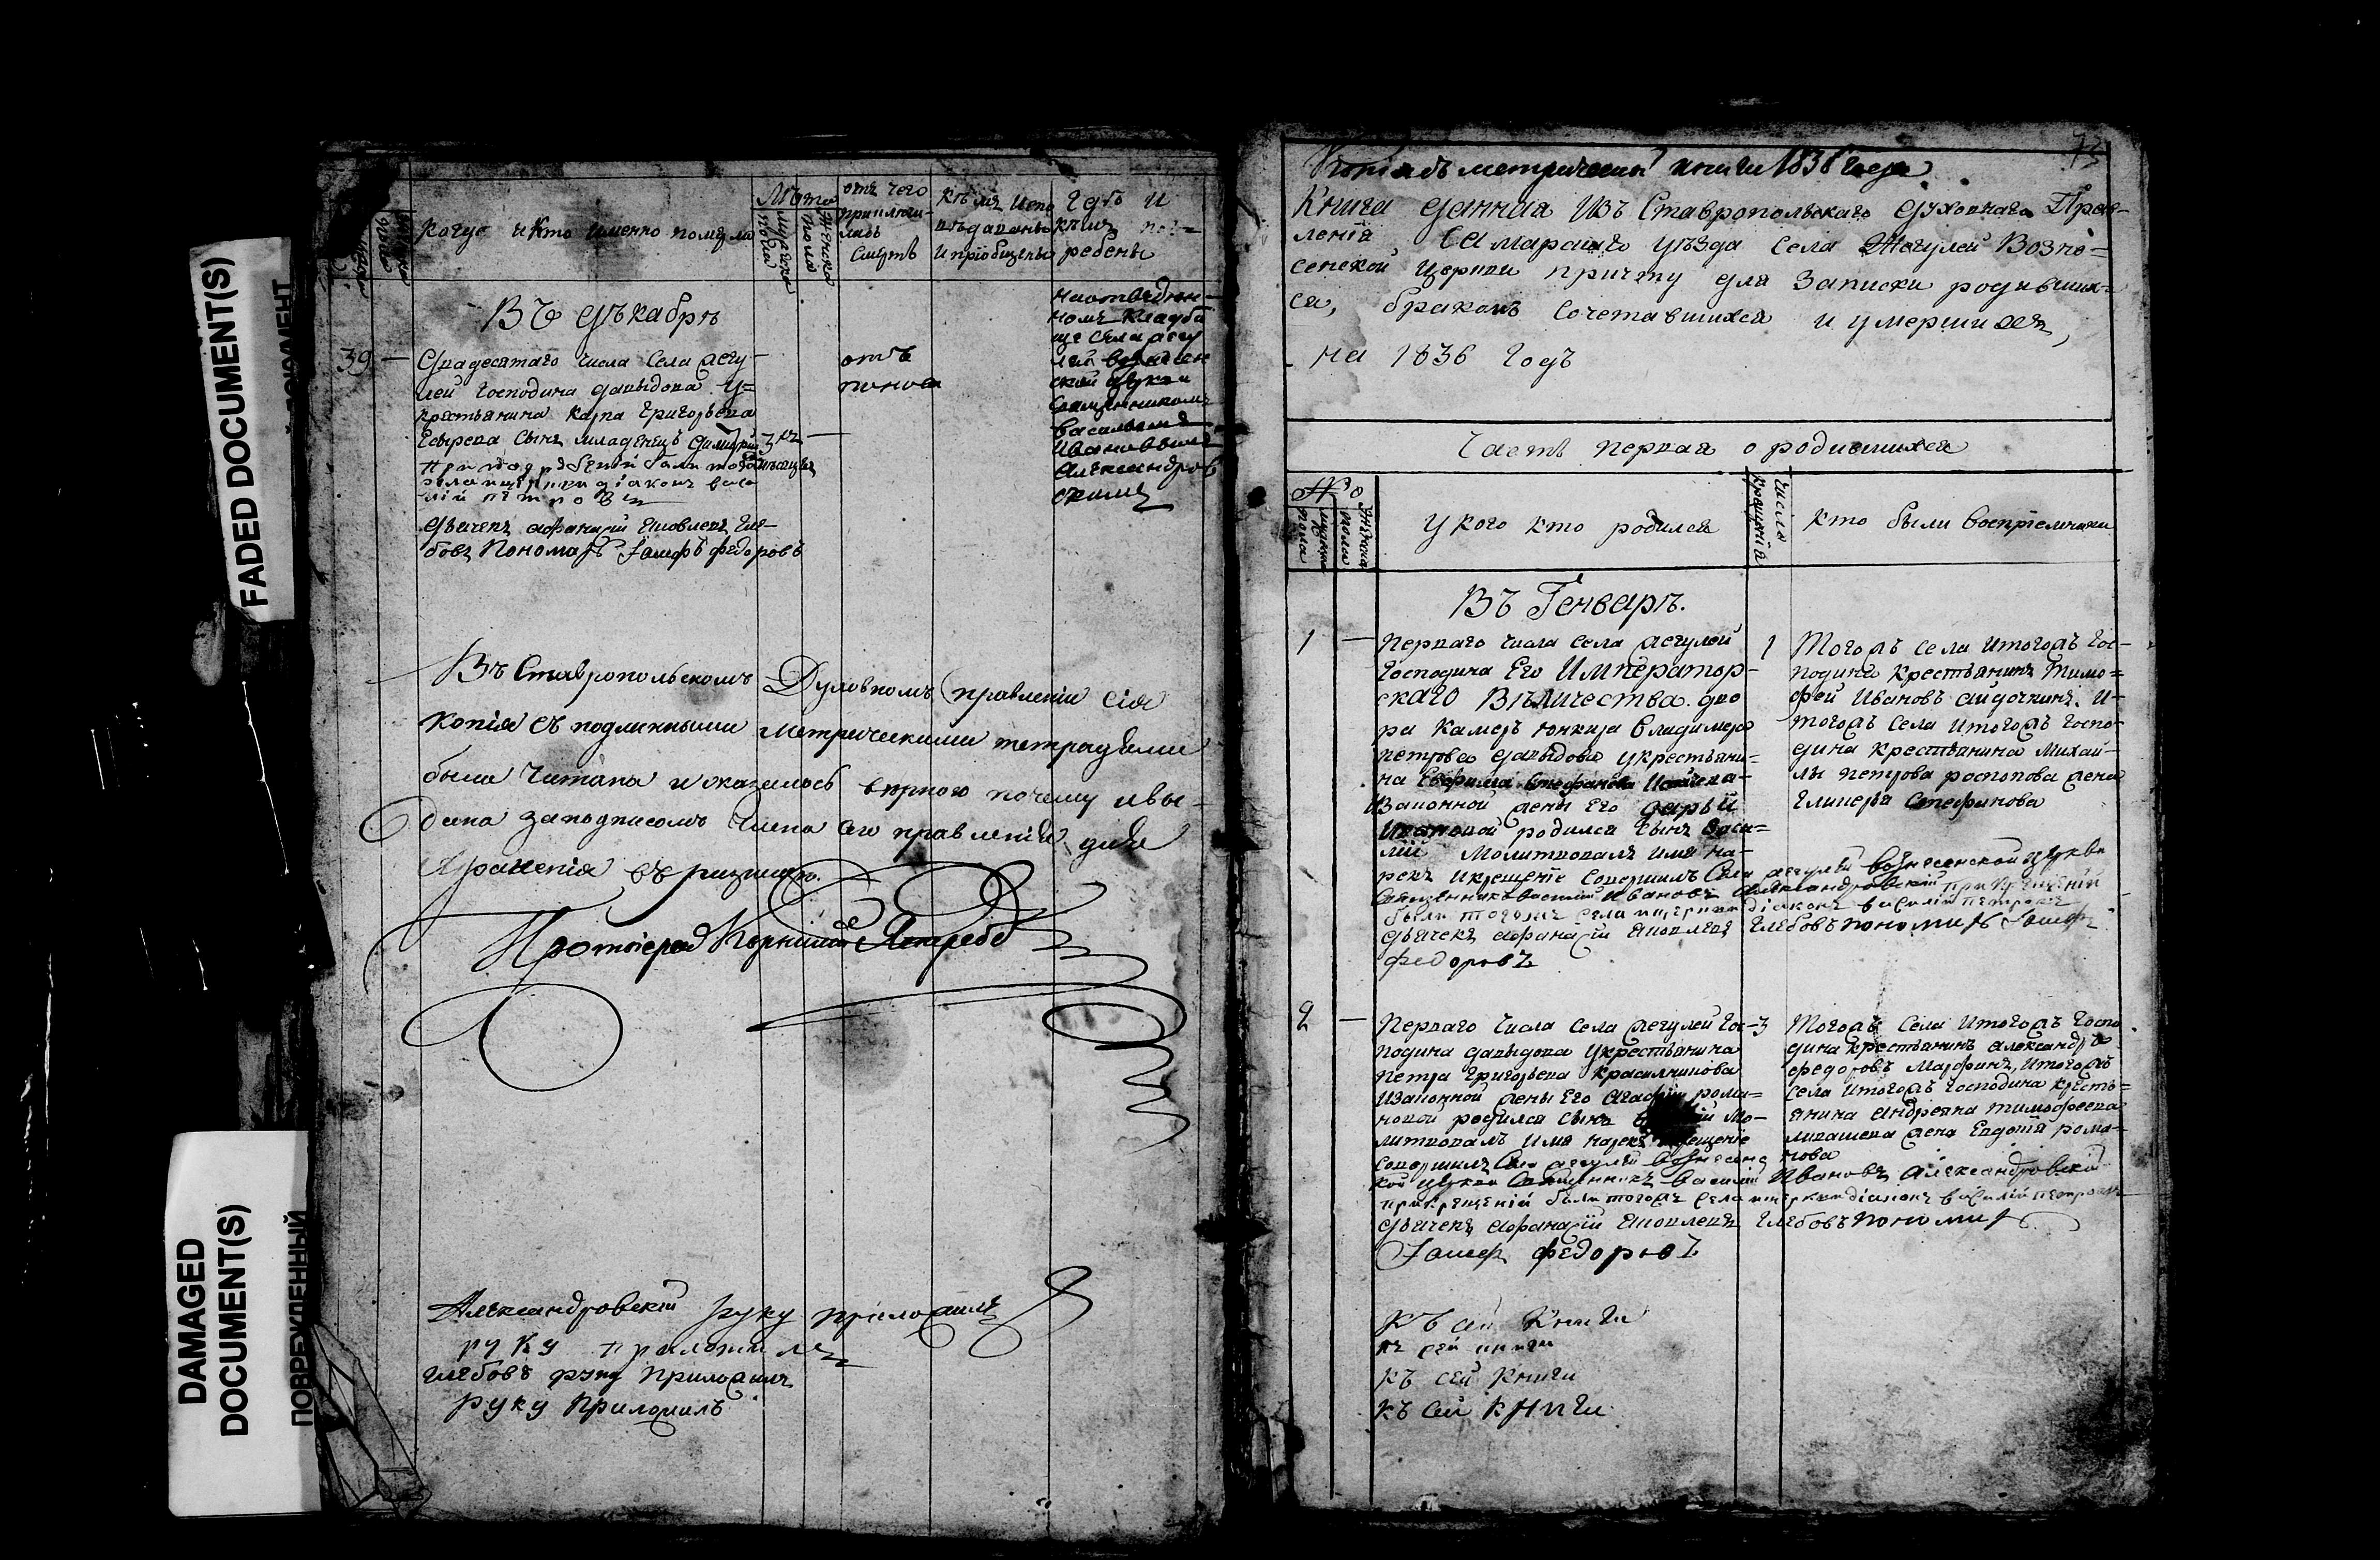 FADED DOCUMENT(S)
DAMAGED
DOCUMENT(S)
ПОВРЕЖДЕННЫЙ
Когда и Кто Именно помер
Лѣта
мужеска пола
женска пола
отъ чего
приключи-
лась
Смерть
Кѣмъ Испо
вѣдованы
и пріобщены
Гдѣ и
кѣмъ пог=
ребены
Въ дѣкабрѣ
39 —
Двадесятаго числа Села Жегу-
лей Господина давыдова у=
крестьянина Карпа Григорьева
сынъ младенецъ
діаконъ васи
лій петровъ
дьячекъ афанасій яковлевъ Гле-
бовъ Пономарь Іосифъ федоровъ
отъ
поноса
на отведен-
номъ кладби
ще Села жегу
лей вознесен
ской церкви
Священникомъ
василіемъ
Ивановымъ
Александров
скимъ
Въ Ставропольскомъ Духовномъ правленіи сія
копія съ подлинными метрическими тетрадями
была читана и оказалось верною почему и вы-
дана за подписомъ члена сего правленія для
храненія въ ризницѣ.
Протоіерей Корнилій Ястребовъ
Александровскій руку приложилъ
руку приложилъ
Глебовъ руку приложилъ
руку приложилъ
73
Копія съ метрической книги 1836 года.
Книга данная Изъ Ставропольскаго духовнаго Прав-
ленія, Самарскаго уѣзда села Жегулей Возне=
сенской Церкви причту для записки родивших=
ся, бракомъ сочетавшихся и умершихъ,
на 1836 годъ
Часть первая о родившихся
№
мужеска пола
женска пола
у кого кто родился
число крещенія
кто были воспріемники
Въ Генварѣ.
1 —
Перваго числа села жегулей
Господина Его Император-
скаго Величества дво
ра Камеръ юнкира Владимера
петрова давыдова у крестьяни-
на Ефрема Стефанова
Законной жены Его дарьи
Ивановой родился сынъ васи=
лій молитвовалъ имя на-
рекъ и крещеніе совершилъ Села жегулей вознесенской церкви
Священникъ василій Ивановъ александровскій при крещеніи
были тогожъ села и церкви діаконъ василій петровъ
дьячекъ афанасій яковлевъ Глебовъ пономарь Іосифъ
федоровъ
1
Тогожъ села и тогожъ гос-
подина крестьянинъ Тимо=
фей Ивановъ И-
тогожъ села и тогожъ госпо-
дина крестьянина михай-
лы петрова роспопова жена
Гликерья Стефанова
2 —
Перваго числа села жегулей Гос-
подина давыдова у крестьянина
петра Григорьева Красильникова
И законной жены Его Агафьи рома=
новой родился сынъ мо-
литвовалъ имя нарекъ крещеніе
совершилъ Села жегулей вознесенс
кой церкви Священникъ василій Ивановъ александровскій
при крещеніи были тогожъ села и церкви діаконъ василій петровъ
дьячекъ афанасій яковлевъ Глебовъ пономарь
Іосифъ федоровъ
3
Тогожъ села и тогожъ госпо
дина крестьянинъ александръ
федоровъ Марфинъ, и тогожъ
села и тогожъ господина кресть=
янина андреяна тимофеева
жена Евдокія рома-
нова
къ сей книги
къ сей книги
къ сей книги
къ сей книги